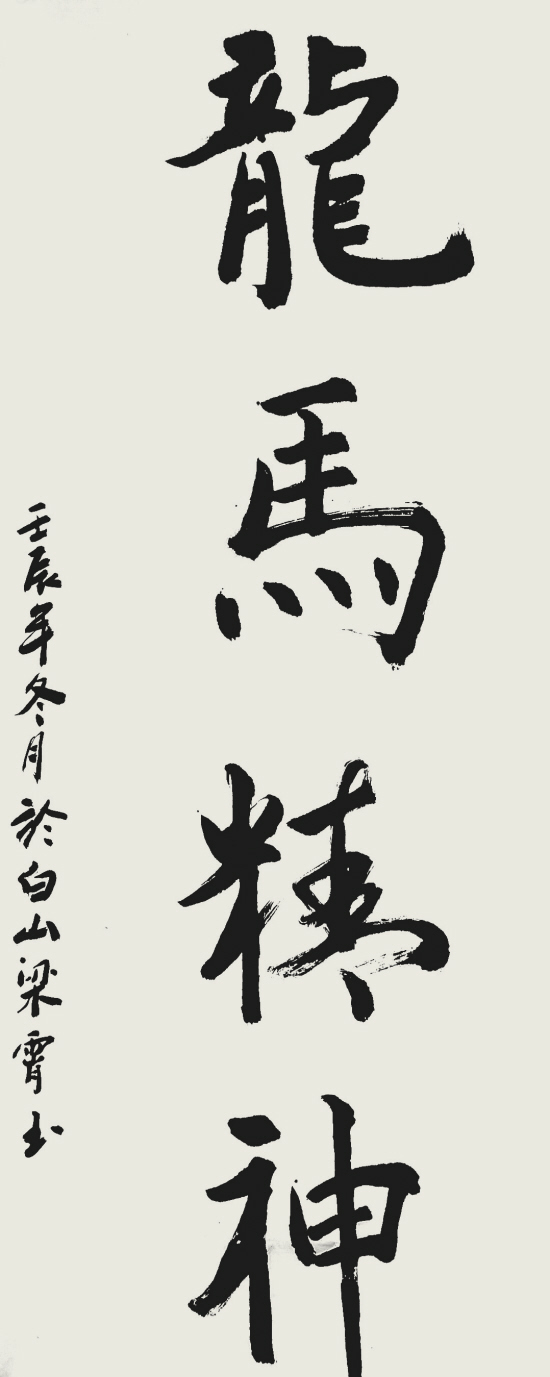 龍馬精神
壬辰年冬月於白山梁霄玉